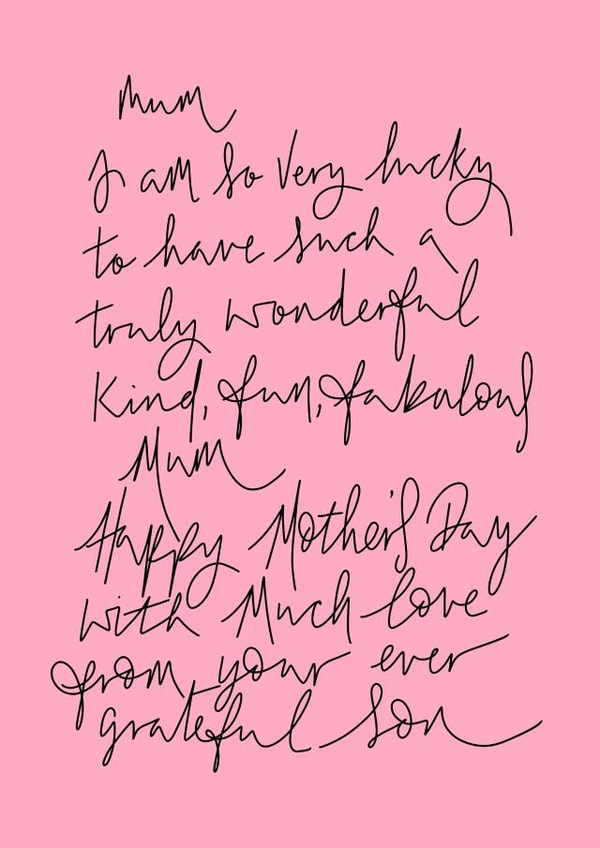 Mum
I am so very lucky
to have such a
truly wonderful
Kind, fun, fabulous
Mum
Happy Mother's Day
with Much love
from your ever
grateful Son